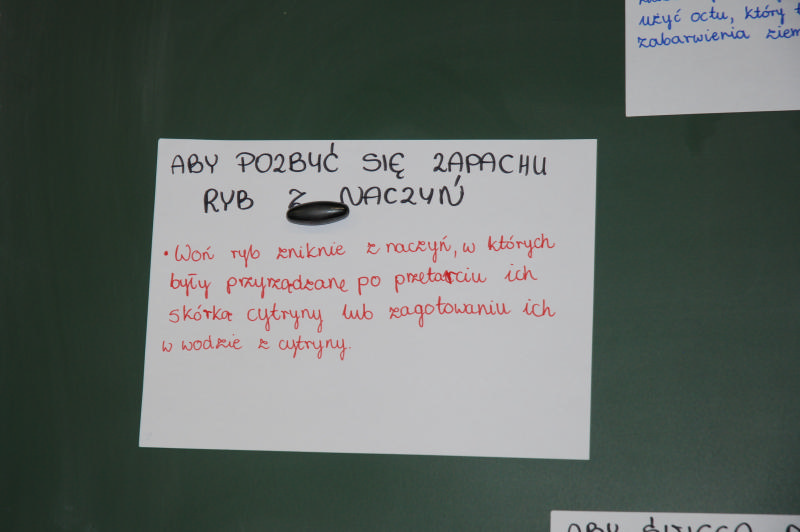 użyć octu, który
zabarwienia
ABY POZBYĆ SIĘ ZAPACHU
RYB Z NACZYŃ
• Woń ryb zniknie z naczyń, w których
były przyrządzane po przetarciu ich
skórką cytryny lub zagotowaniu ich
w wodzie z cytryny.
ABY